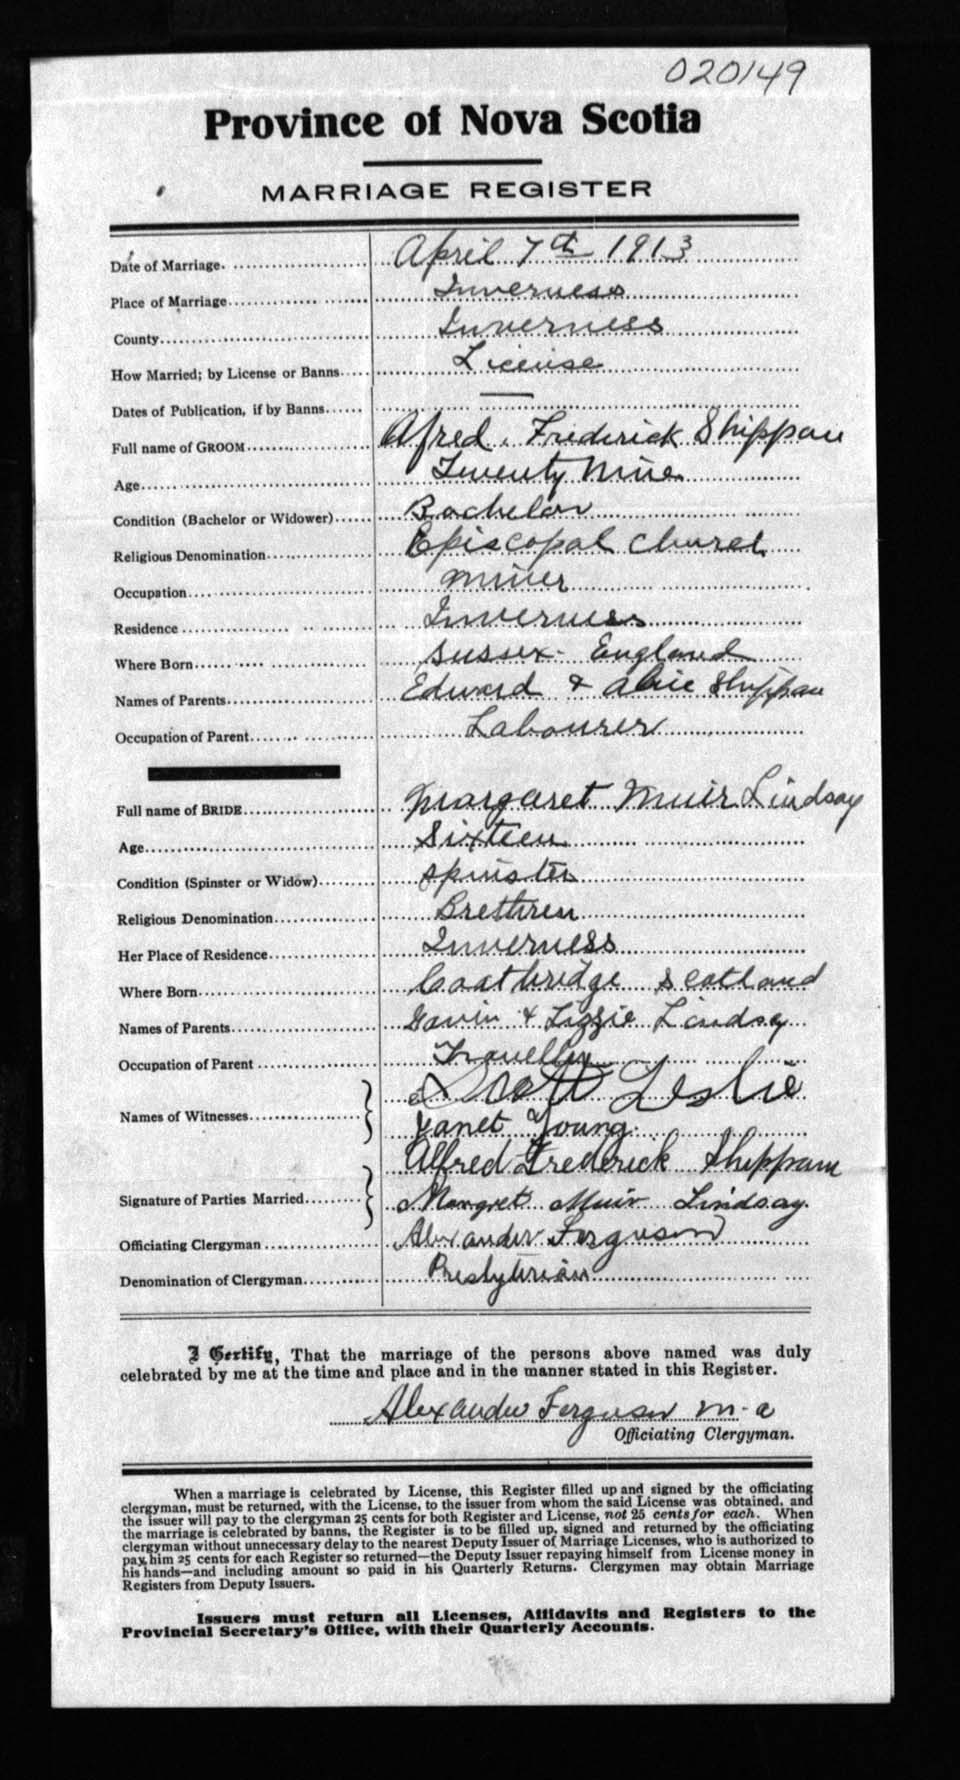 020149
Province of Nova Scotia
MARRIAGE REGISTER
Date of Marriage. April 7th 1913
Place of Marriage Inverness
County Inverness
How Married; by License or Banns License
Dates of Publication, if by Banns —
Full name of GROOM Afred. Frederick Shippam
Age Twenty Nine
Condition (Bachelor or Widower) Bachelor
Religious Denomination Episcopal Church
Occupation Miner
Residence Inverness
Where Born Sussex - England
Names of Parents Edward & Alice Shippam
Occupation of Parent Labourer
Full name of BRIDE Margaret Muir Lindsay
Age Sixteen
Condition (Spinster or Widow) Spinster
Religious Denomination Brethren
Her Place of Residence Inverness
Where Born Coatbridge Scotland
Names of Parents Gavin & Lizzie Lindsay
Occupation of Parent Traveller
Names of Witnesses Scott Leslie
Janet Young
Signature of Parties Married Alfred Frederick Shippam
Margret Muir Lindsay.
Officiating Clergyman Alexander Ferguson
Denomination of Clergyman Presbyterian
I Certify, That the marriage of the persons above named was duly
celebrated by me at the time and place and in the manner stated in this Register.
Alexander Ferguson M-a
Officiating Clergyman.
When a marriage is celebrated by License, this Register filled up and signed by the officiating
clergyman, must be returned, with the License, to the issuer from whom the said License was obtained, and
the issuer will pay to the clergyman 25 cents for both Register and License, not 25 cents for each. When
the marriage is celebrated by banns, the Register is to be filled up, signed and returned by the officiating
clergyman without unnecessary delay to the nearest Deputy Issuer of Marriage Licenses, who is authorized to
pay him 25 cents for each Register so returned—the Deputy Issuer repaying himself from License money in
his hands—and including amount so paid in his Quarterly Returns. Clergymen may obtain Marriage
Registers from Deputy Issuers.
Issuers must return all Licenses, Affidavits and Registers to the
Provincial Secretary's Office, with their Quarterly Accounts.